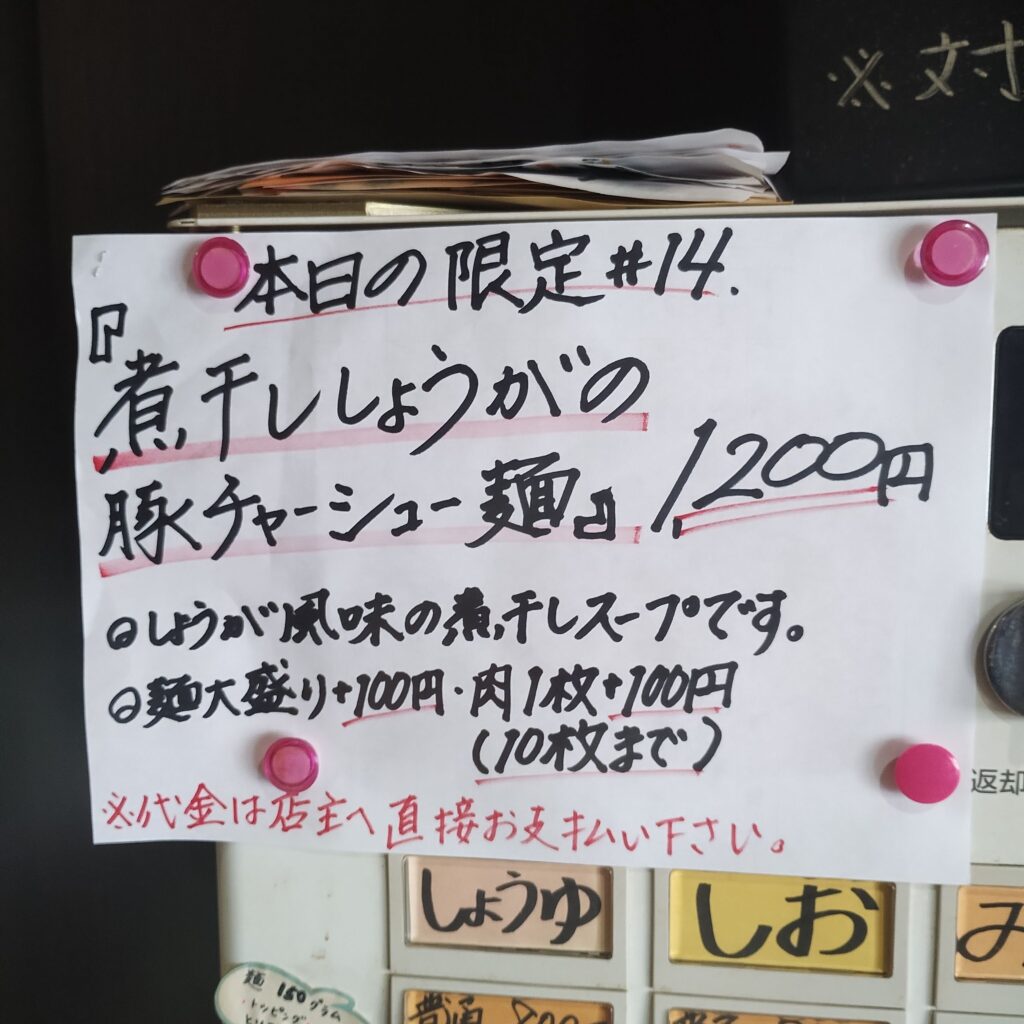 ※対
本日の限定#14.
『煮干ししょうがの
豚チャーシュー麺』 1,200円
◎しょうが風味の煮干しスープです。
◎麺大盛り+100円・肉1枚+100円
(10枚まで)
※代金は店主へ直接お支払い下さい。
返却
しょうゆ
しお
み
麺 150グラム
トッピング
普通 800